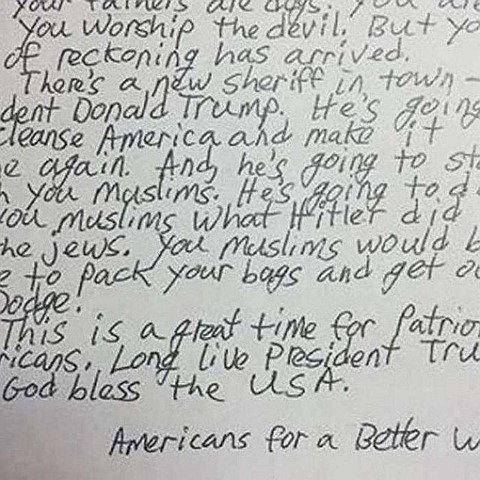 your fathers are dogs. You are
You worship the devil. But yo
of reckoning has arrived.
There's a new sheriff in town –
dent Donald Trump. He's going
cleanse America and make it
e again. And, he's going to sta
h you muslims. He's going to d
ou muslims what Hitler did
he jews. You muslims would b
e to pack your bags and get ou
Dodge!
This is a great time for Patrio
ricans. Long live President Tru
God bless the USA.
Americans for a Better W